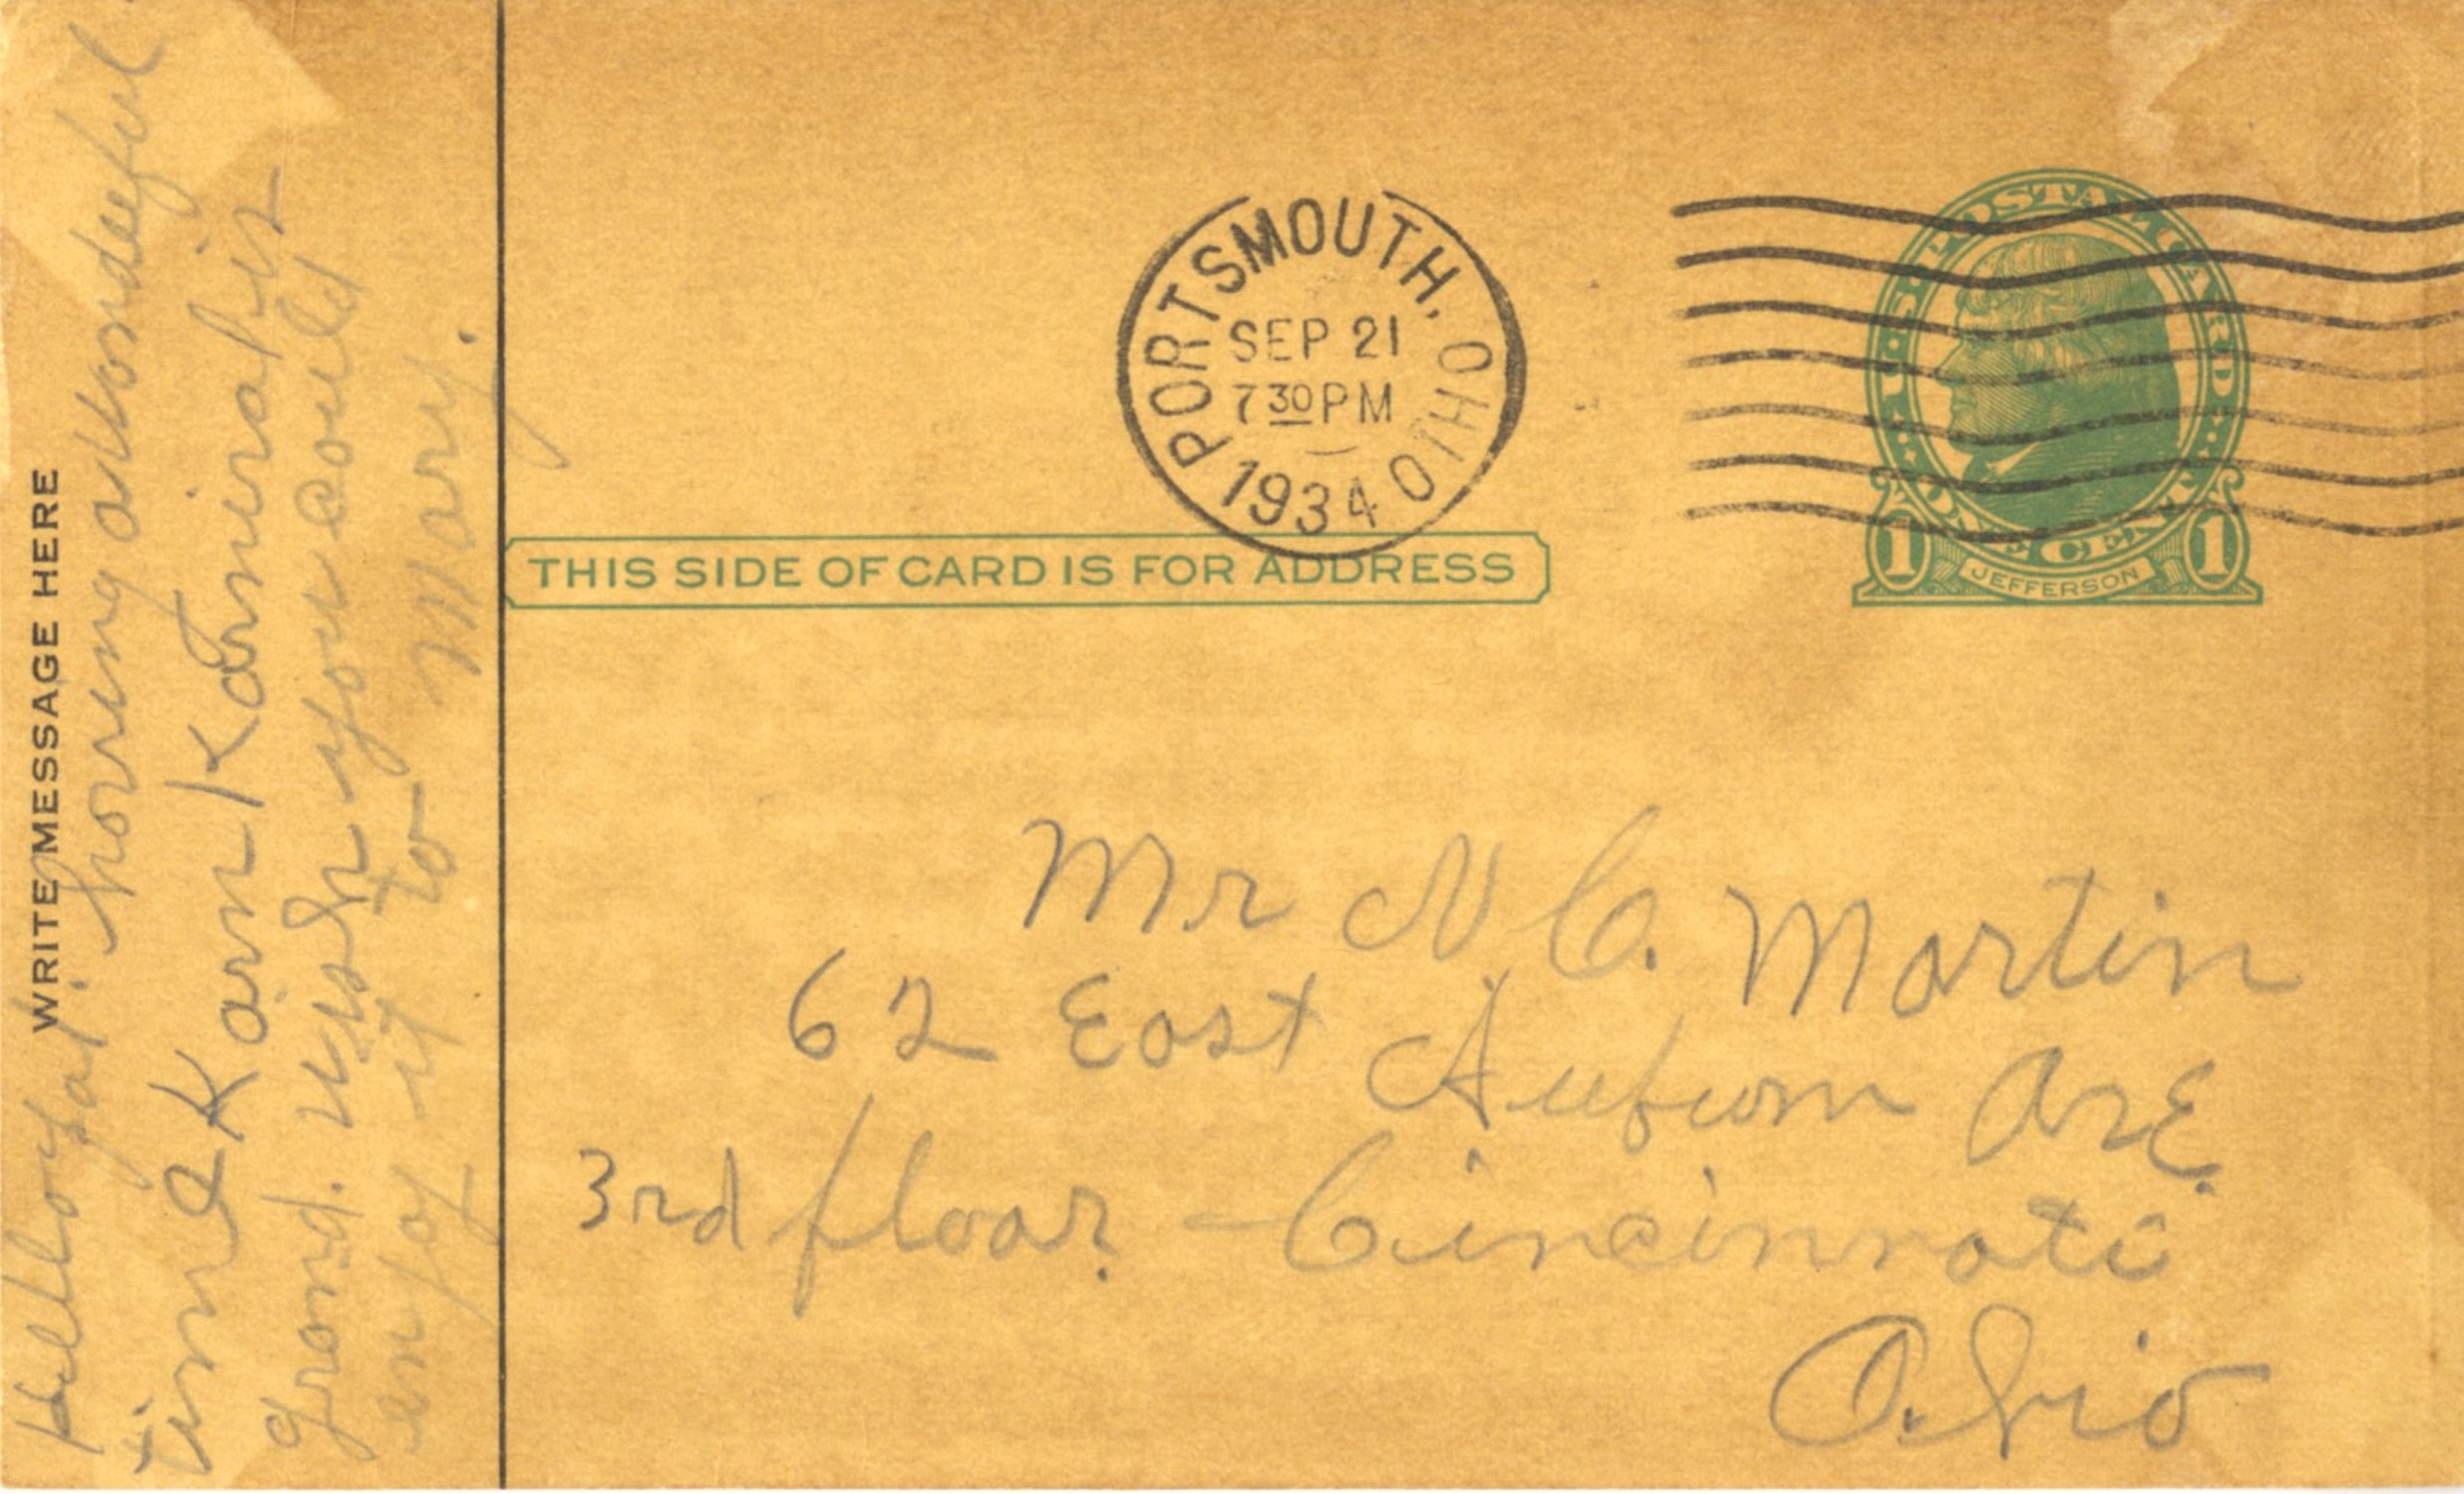 WRITE MESSAGE HERE
Hello Pal. having a wonderful
time Korn Karnival is
grand. Wish you could
enjoy it to
Mary.
PORTSMOUTH, OHIO
SEP 21
7 30 PM
1934
U·S·POSTAL CARD
ONE CENT
1 JEFFERSON 1
THIS SIDE OF CARD IS FOR ADDRESS
Mr N C. Martin
62 East Auburn Ave.
3rd floor. - Cincinnati
Ohio